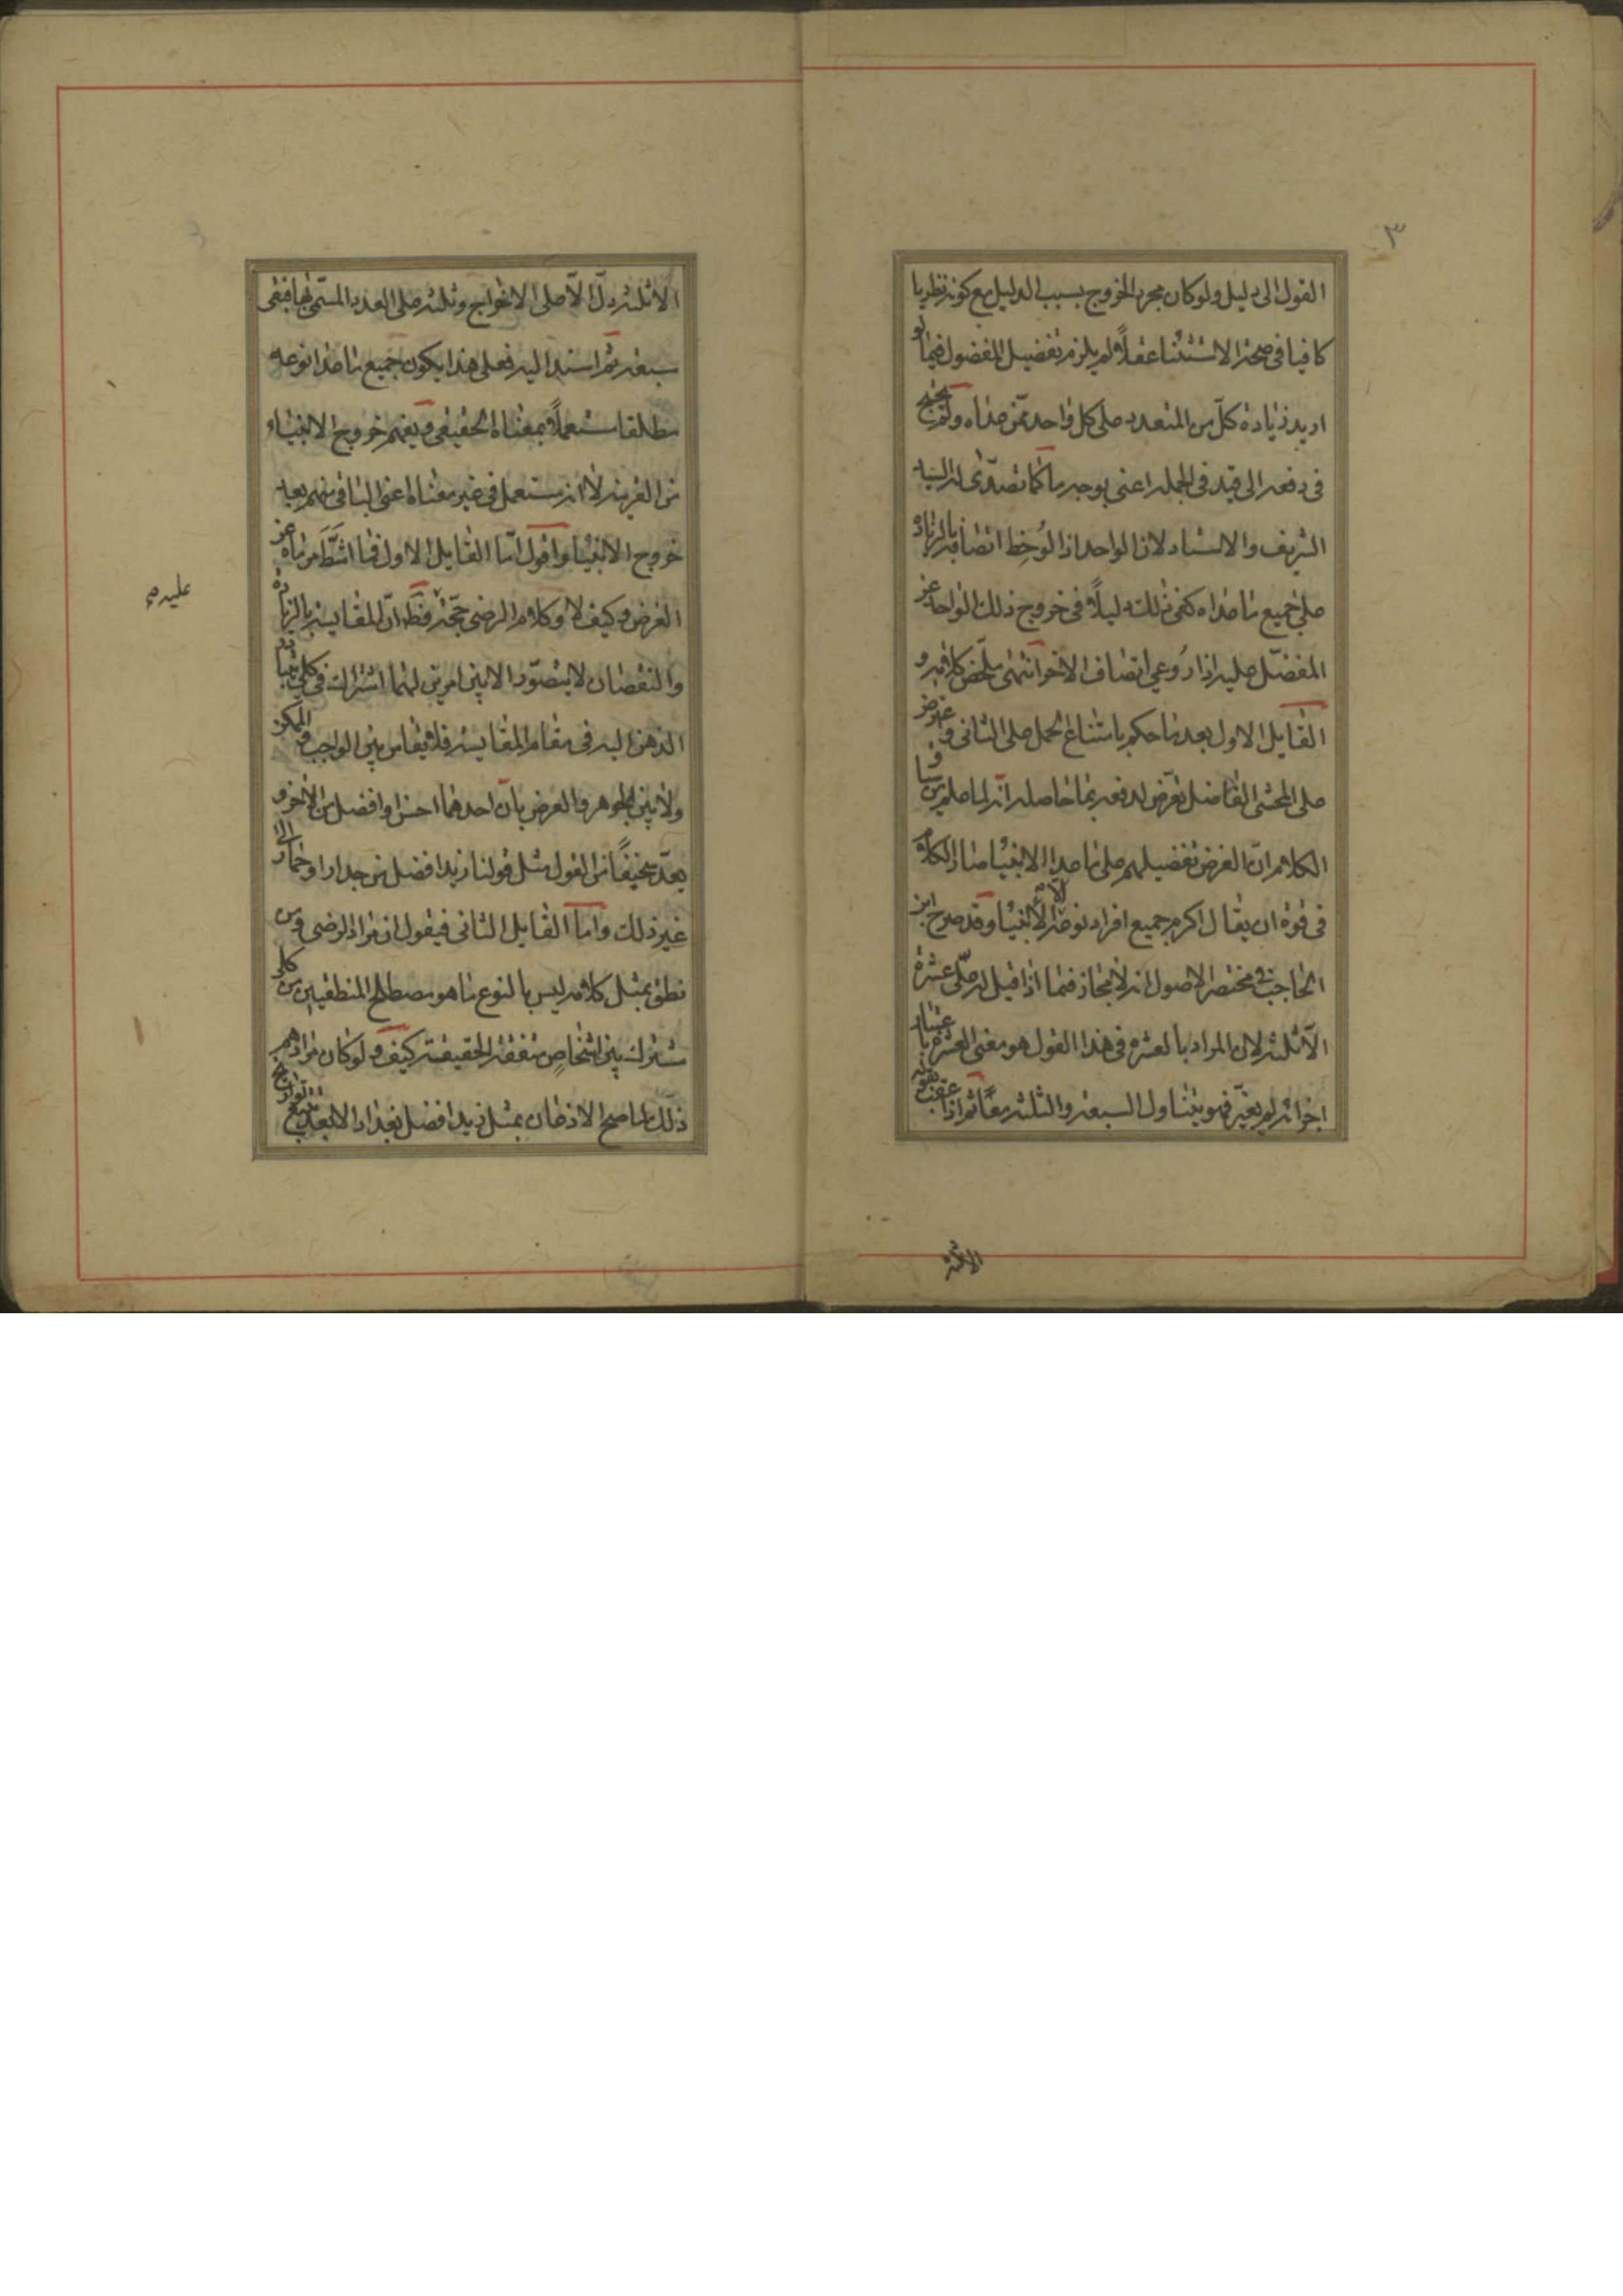 ٣
القول الى دليل ولو كان مجرد الخروج بسبب الدليل مع كونه نظريا
كافيا فى صحة الاستثنا عقلاً لم يلزم تفضيل المفضول فيما لو
اريد زيادة كلّ من المتعدد على كل واحد ممّن عداه ولم يحتج
فى دفعه الى قيد فى الجملة اعنى بوجه ما كما تصدّى له السيد
الشريف والاستاد لان الواحد اذا لُوحِظ اتصافه بالزيادة
على جميع ما عداه كفى ذلك دليلاً فى خروج ذلك الواحد عن
المفضّل عليه اذا رُوعى اتصاف الاخر انتهى ملخص كلامه و
القايل الاول بعد ما حكم بامتناع الحمل على الثانى و
على المحشى الفاضل تعرّض لدفعه بما حاصله انّه لما علم من
الكلام انّ الغرض تفضيلهم على ما عدا الانبيا صار الكلام
فى قوة ان يقال اكرم جميع افراد نوعه الا الانبيا وقد صرح ابن
الحاجب فى مختصر الاصول انه لا مجاز فيما اذا قيل له علىّ عشرة
الّا ثلثة لان المراد بالعشرة فى هذا القول هو معنى العشرة باعتبار
اجزائه لم يغيّر فهو يتناول السبعة والثلثة معًا ثم اذا عقب بقوله
الا ثلثة
الا ثلثة دلّ الّا على الاخراج وثلثة على العدد المسمّى بها فبقى
سبعة ثم اسند اليه فعلى هذا يكون جميع ما عدا نوعه
مطلقا مستعملاً بمعناه الحقيقى ويفهم خروج الانبياء
من القرينة لا انه مستعمل فى غير معناه اعنى الباقى منهم بعد
خروج الانبيا واقول امّا القايل الاول فما اشَطَّ مرماه عن
الغرض وكيف لا وكلام الرضى حجّة فظّ انّ المقايسة بالزيادة
والنقصان لا يتصوّر الا بين امرين لهما اشتراك فى كلى يتبادر
الذهن اليه فى مقام المقايسة فلا يقاس بين الواجب والممكن
ولا بين الجوهر والعرض بانّ احدهما احسن او افضل من الاخر و
يعدّ سخيفًا من القول مثل قولنا زيد افضل من جدار او حمار الى
غير ذلك وامّا القايل الثانى فيقول ان مراد الرضى ومن
نطق بمثل كلامه ليس بالنوع ما هو مصطلح المنطقيين من كلى
مشترك بين اشخاصٍ متفقة الحقيقة كيف ولو كان مرادهم
ذلك لما صح الاذعان بمثل زيد افضل بغداد الا بعد
عليه ص